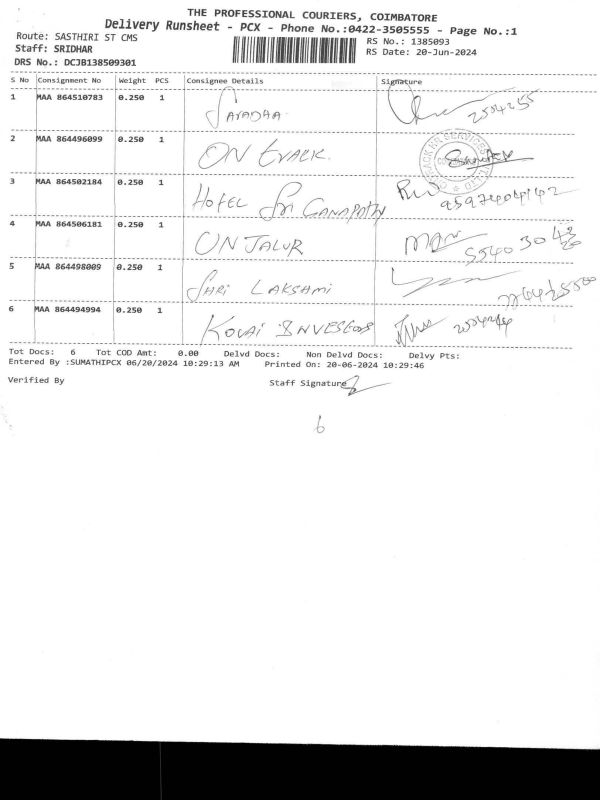 THE PROFESSIONAL COURIERS, COIMBATORE
Delivery Runsheet - PCX - Phone No.:0422-3505555 - Page No.:1
Route: SASTHIRI ST CMS
RS No.: 1385093
Staff: SRIDHAR
RS Date: 20-Jun-2024
DRS No.: DCJB138509301
S No Consignment No Weight PCS Consignee Details Signature
1 MAA 864510783 0.250 1
2 MAA 864496099 0.250 1 ON
3 MAA 864502184 0.250 1 HOTEL Sri GANAPATHY
4 MAA 864506181 0.250 1 ON JALUR
5 MAA 864498009 0.250 1 SHRI LAKSHMI
6 MAA 864494994 0.250 1 KOVAI
Tot Docs: 6 Tot COD Amt: 0.00 Delvd Docs: Non Delvd Docs: Delvy Pts:
Entered By :SUMATHIPCX 06/20/2024 10:29:13 AM Printed On: 20-06-2024 10:29:46
Verified By Staff Signature
6